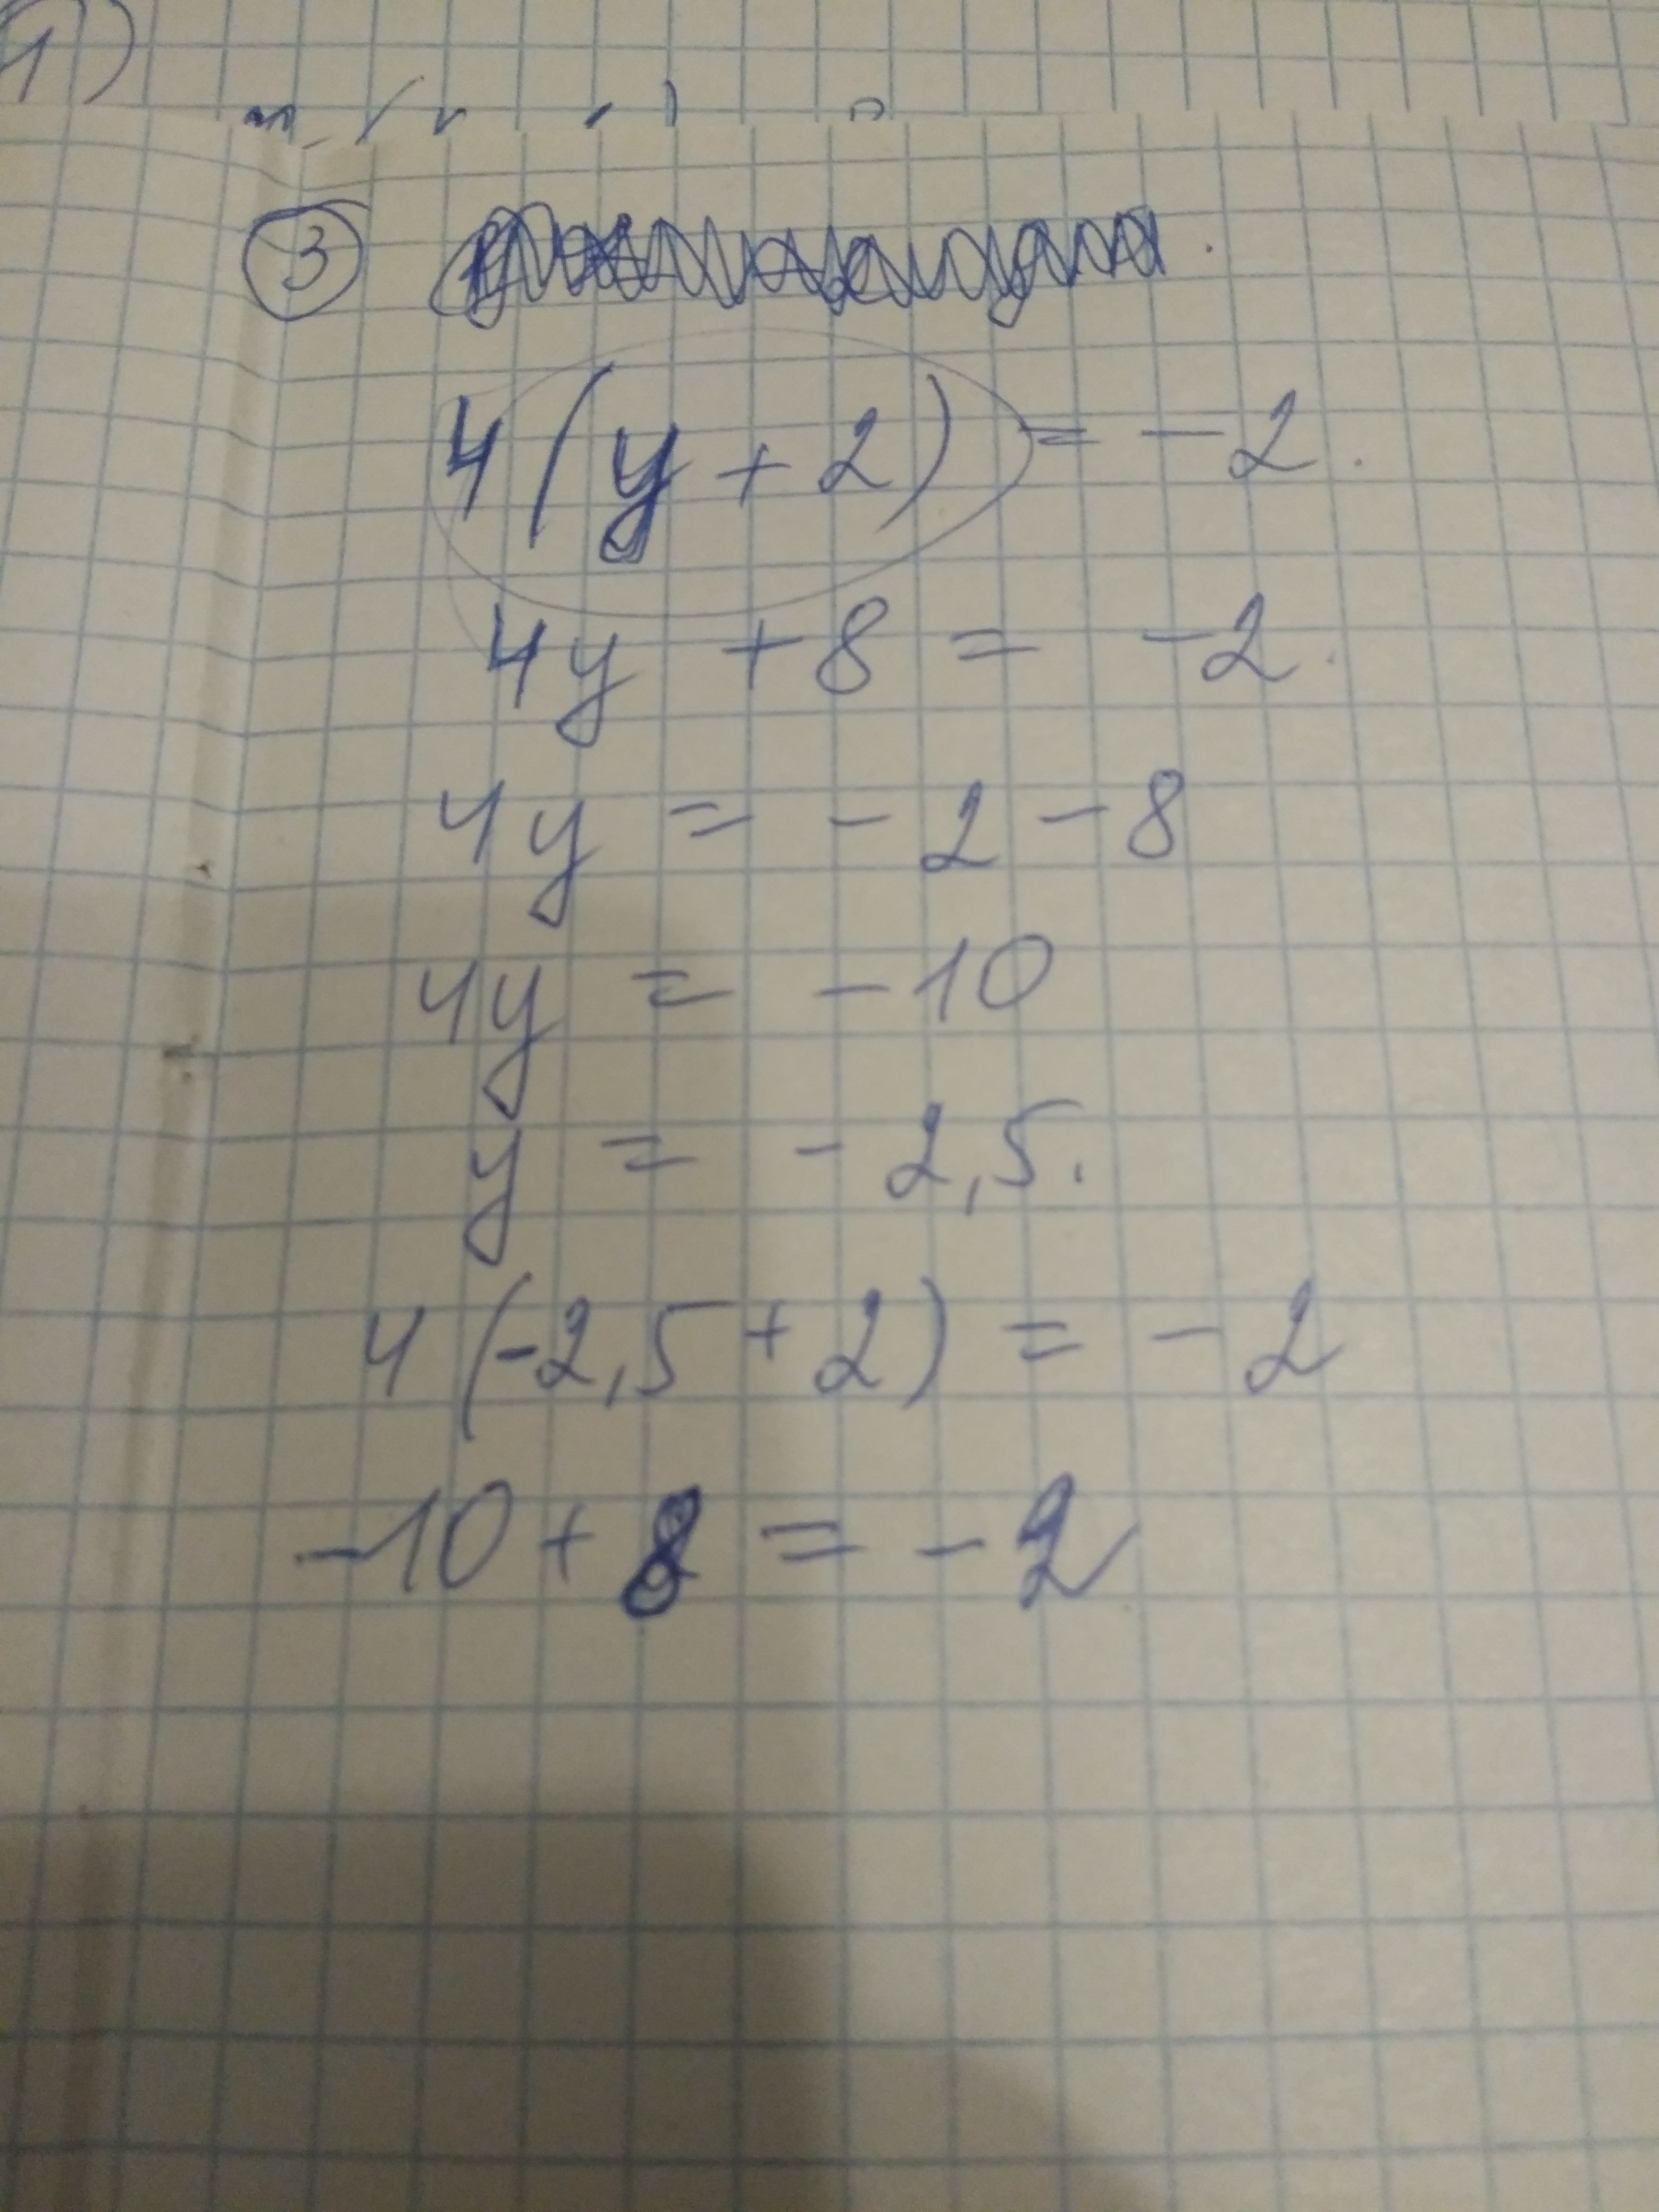 1)
3
4(y+2) = -2.
4y +8 = -2.
4y = -2 -8
4y = -10
y = -2,5.
4(-2,5+2) = -2
-10+8 = -2